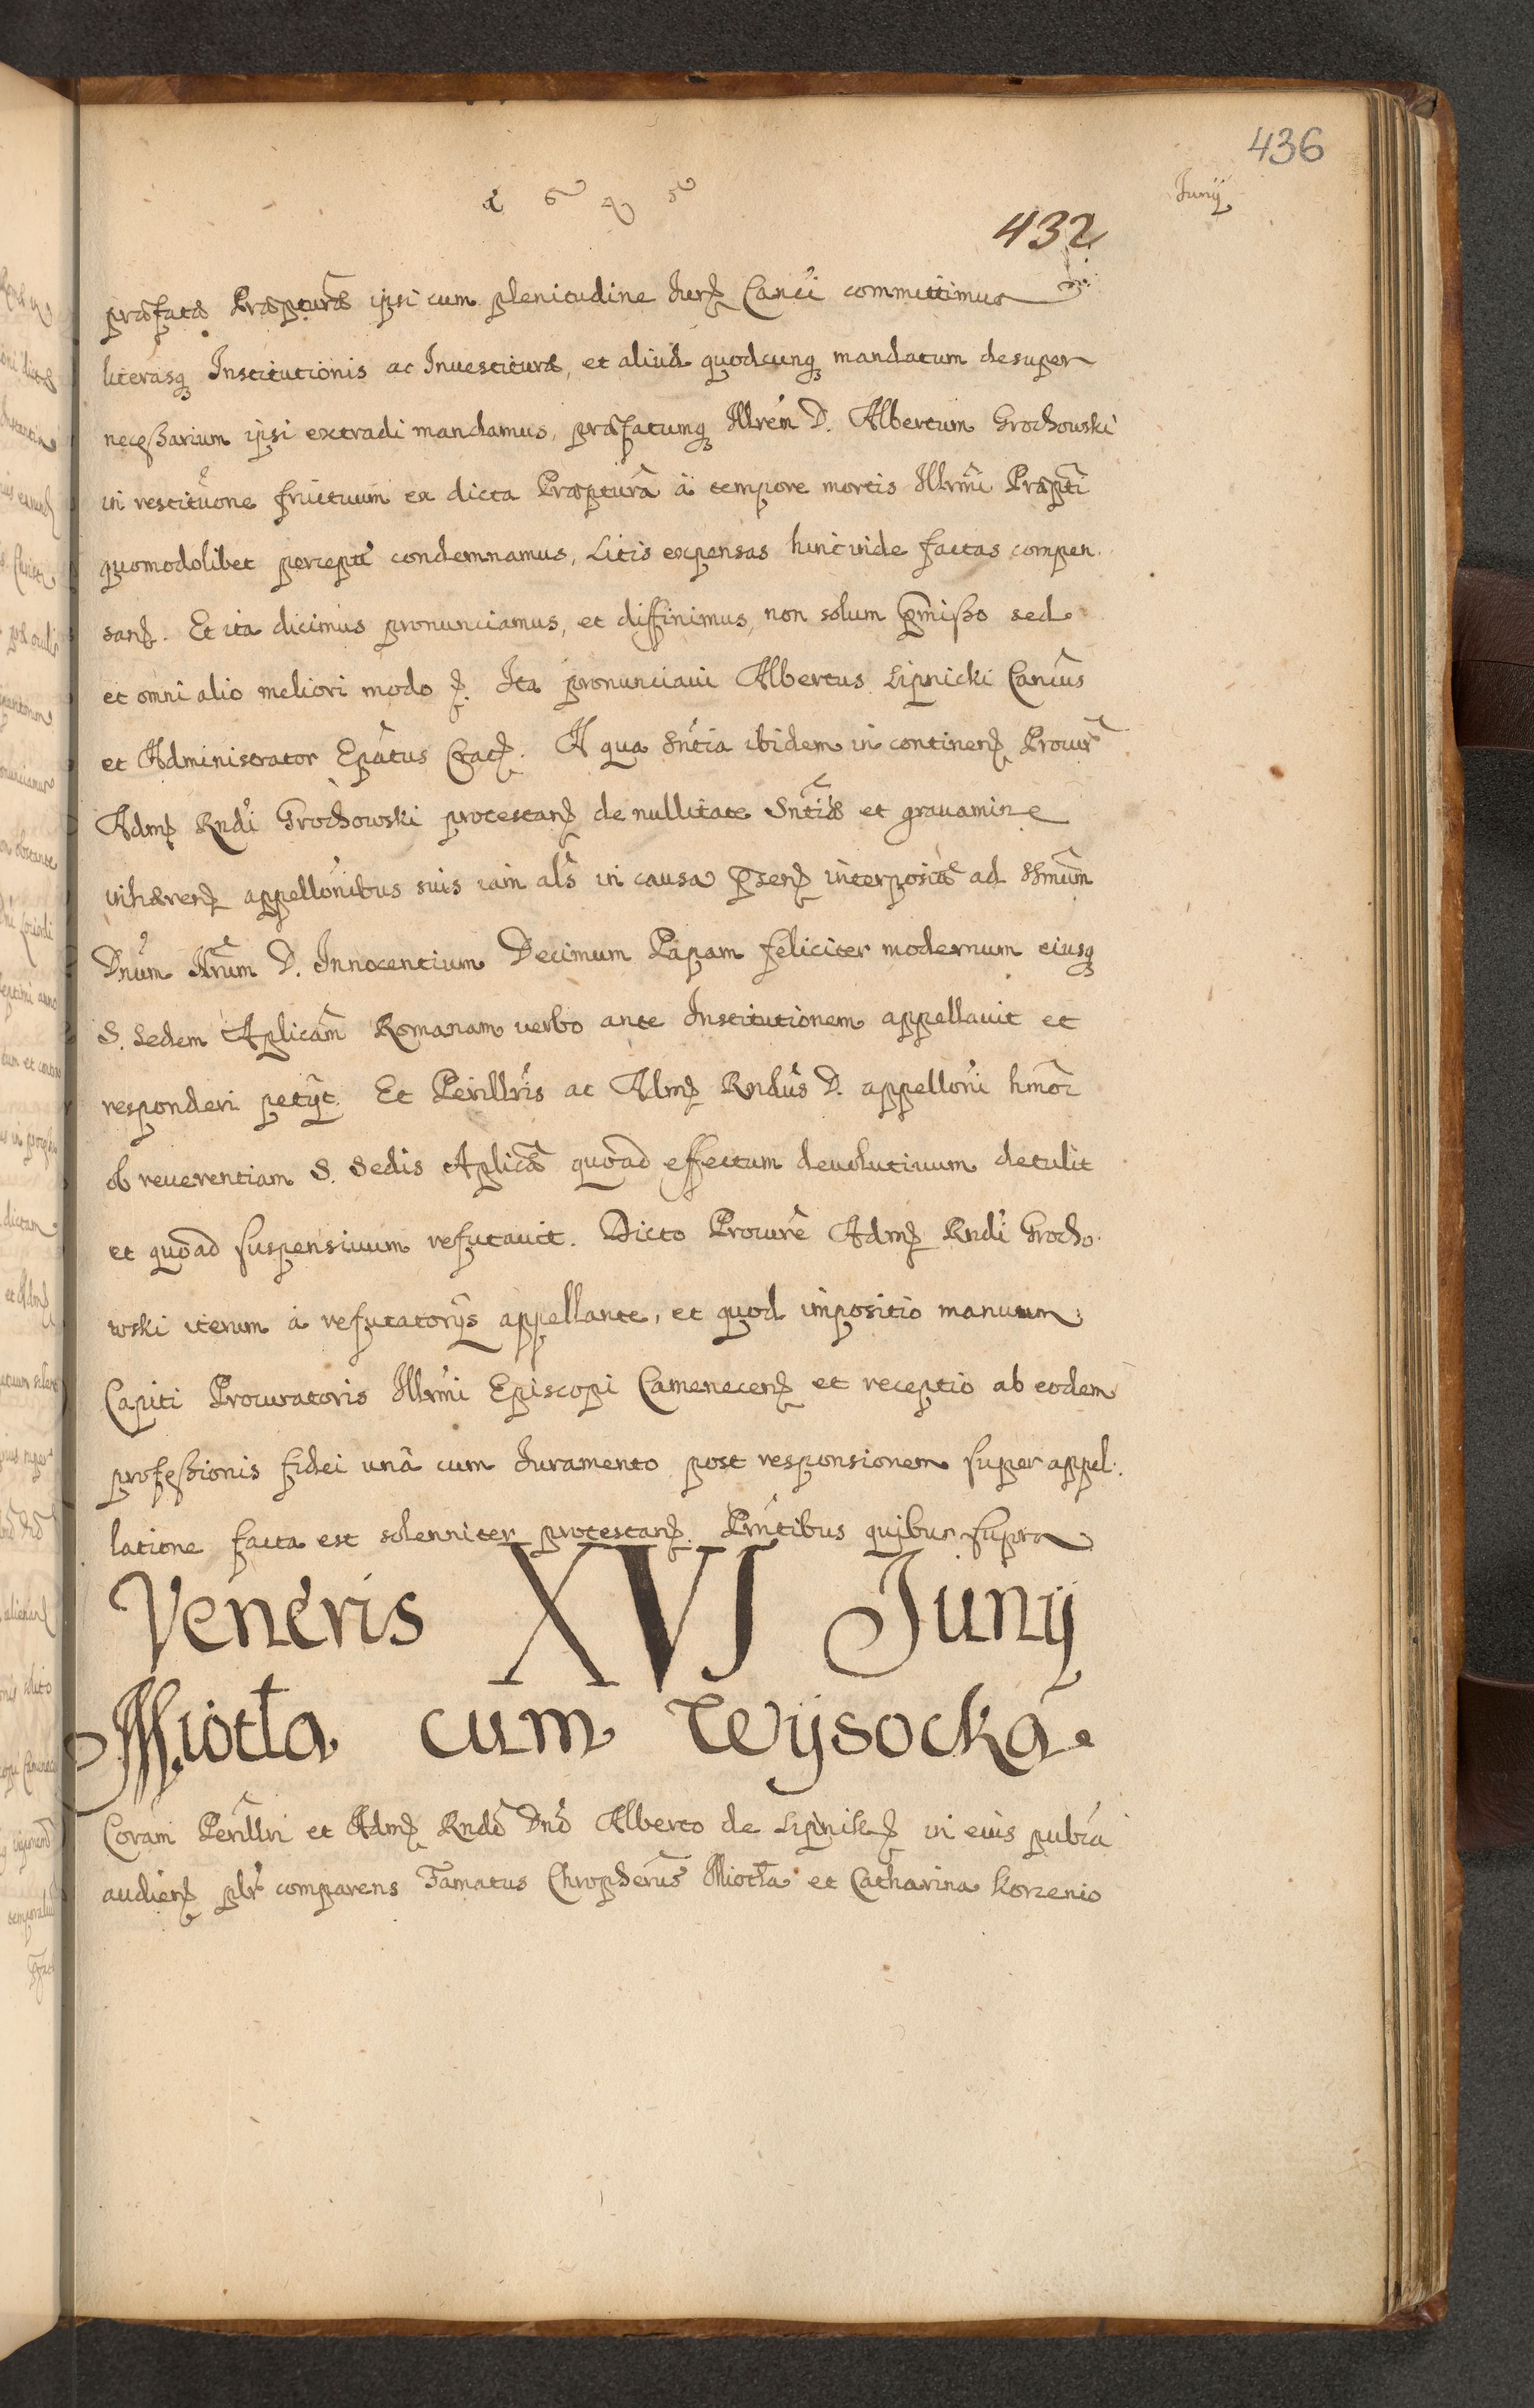 436
Junÿ
1 6 4 5
432
præfatæ Præpturæ ipsi cum plenitudine Jurs Canci committimus
literasq Institutionis ac Inuestituræ, et aliud quodcunq mandatum desuper
necessarium ipsi extradi mandamus, præfatumq Illrem D. Albertum Grochowski
in restitūone fructuum ex dicta Præpturâ à tempore mortis Illrmi Præpti
quomodolibet perceptī condemnamus, Litis expensas hinc inde factas compen.
sans. Et ita dicimus pronunciamus, et diffinimus, non solum pmisso sed
et omni alio meliori modo. Ita pronunciaui Albertus Lipnicki Cancus
et Administrator Epatus Crac. A qua Sntia ibidem in continen Procur
Adm Rndi Grochowski protestan de nullitate Sntiæ et grauamine
inhæren appellonibus suis iam als in causa psen interpositis ad SSmum
Dnum Nrum D. Innocentium Decimum Papam feliciter modernum eiusq
S. Sedem Aplicam Romanam verbo ante Institutionem appellauit et
responderi petÿt. Et Perillris ac Adm Rndus D. appelloni hmoi
ob reuerentiam S. Sedis Aplicæ quoad effectum deuolutiuum detulit
et quoad suspensiuum refutauit. Dicto Procure Adm Rndi Grocho.
wski iterum à refutatorÿs appellante, et quod impositio manuum
Capiti Procuratoris Illrmi Episcopi Camenecen et receptio ab eodem
professionis fidei unâ cum Juramento post responsionem super appel.
latione facta est solenniter protestan. Prntibus quibus supra
Veneris XVI Junÿ
Miotła cum Wÿsocka.
Coram Perillri et Adm Rndo Dno Alberto de Lipnik in eius publca
audien plr comparens Famatus Chropherus Miotła et Catharina Korzenio